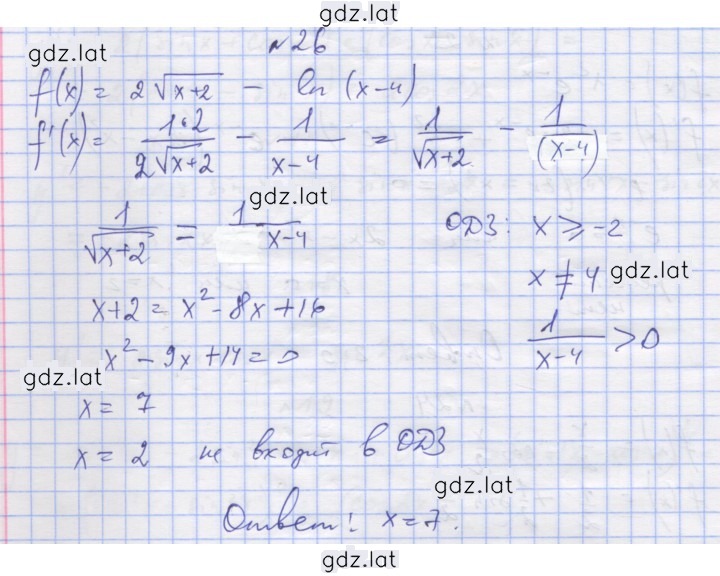 gdz.lat
gdz.lat
№26
f(x) = 2√(x+2) - ln (x-4)
f'(x) = 1·2/(2√(x+2)) - 1/(x-4) = 1/√(x+2) - 1/(x-4)
gdz.lat
1/√(x+2) = 1/(x-4) ОДЗ: x ⩾ -2
x ≠ 4 gdz.lat
x+2 = x² - 8x + 16
1/(x-4) > 0
x² - 9x + 14 = 0
gdz.lat
x = 7
x = 2 не входит в ОДЗ
gdz.lat
Ответ: x=7.
gdz.lat